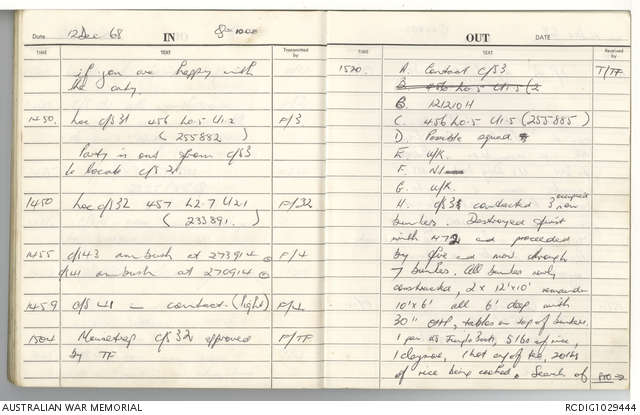 Date 12 Dec 68 IN
TIME TEXT Transmitted by
if you are happy with
the only.
1430 Loc c/s31 456 L0.5 U1.2 F/3
(255882)
Party is out from c/s3
to locate c/s 21.
1450 Loc c/s32 457 L2.7 U2.1 F/32
(233891.)
1455 c/s43 ambush at 273914 F/4
c/s41 ambush at 270914
1459 c/s 41 — contact (light) F/4
1504 Mousetrap c/s 32 approved F/TF
by TF
OUT DATE
TIME TEXT Received by
1520. A. Contact c/s3 T/TF
B. 456 L0.5 U1.5 (2
B. 121210H
C. 456 L0.5 U1.5 (255885)
D. Possible squad
E. U/K.
F. Nil
G. U/K.
H. c/s3 contacted 3 occupied new
bunkers. Destroyed first
with M72 and proceeded
by fire and move through
7 bunkers. All bunkers newly
constructed, 2 x 12'x10' remainder
10'x6' all 6' deep with
30" OHP, tables on top of bunkers.
1 pair Boots, 5 lbs of rice,
1 claymore, 1 hot cup of tea, 20lbs
of rice being cooked. Search of PTO →
AUSTRALIAN WAR MEMORIAL RCDIG1029444